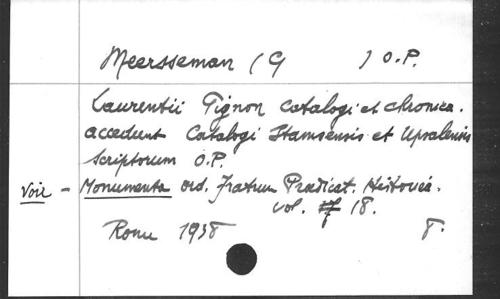 Meersseman (G ) O.P.
Laurentii Pignon catalogi et chronica.
accedunt Catalogi Stamsensis et Upsalensis
Scriptorum O.P.
Voir - Monumenta ord. fratrum Praedicat. Historica.
vol. 18.
Rome 1938 8.